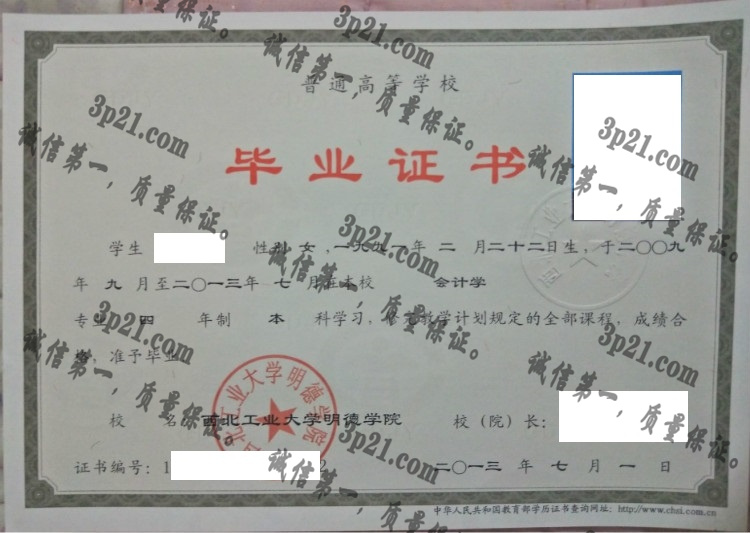 普通高等学校
毕业证书
学生 性别 女 ,一九九一年 二 月二十二日生，于二〇〇九
年 九 月至二〇一三年 七 月在本校 会计学
专业 四 年制 本 科学习，修完教学计划规定的全部课程，成绩合
格，准予毕业
校 名 西北工业大学明德学院 校（院）长：
证书编号：1 2 二〇一三 年 七 月 一 日
中华人民共和国教育部学历证书查询网址：http://www.chsi.com.cn
3p21.com
诚信第一，质量保证。
3p21.com
诚信第一，质量保证。
3p21.com
诚信第一，质量保证。
3p21.com
诚信第一，质量保证。
3p21.com
诚信第一，质量保证。
3p21.com
诚信第一，质量保证。
3p21.com
诚信第一，质量保证。